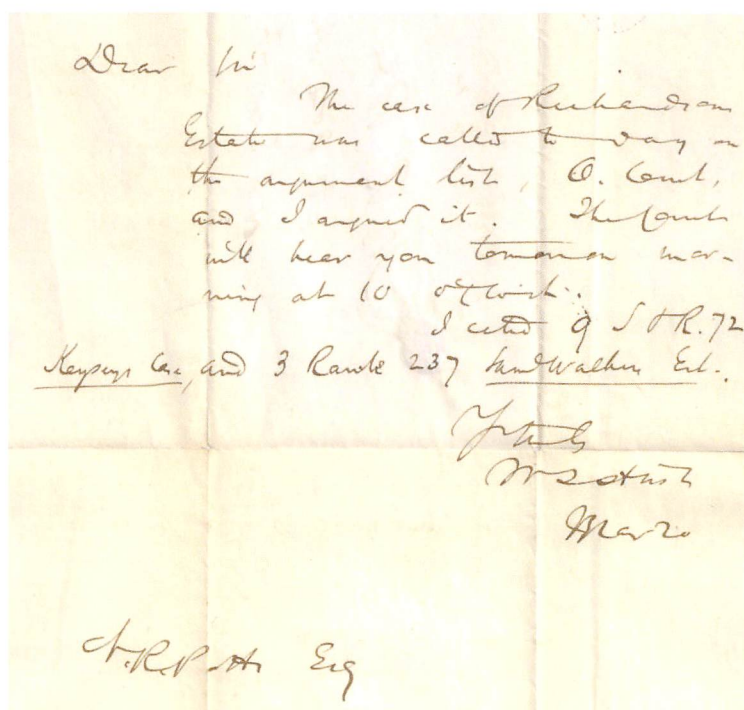 Dear Sir
The case of Richardsons
Estate was called to day on
the argument list, O. Court,
and I argued it. The Court
will hear you tomorrow mor-
ning at 10 o'clock.
I cited 9 S & R. 72
Keysers Case, and 3 Rawle 237 Walkers Est.
Yr truly
Mar 20
N. R. Potts Esq